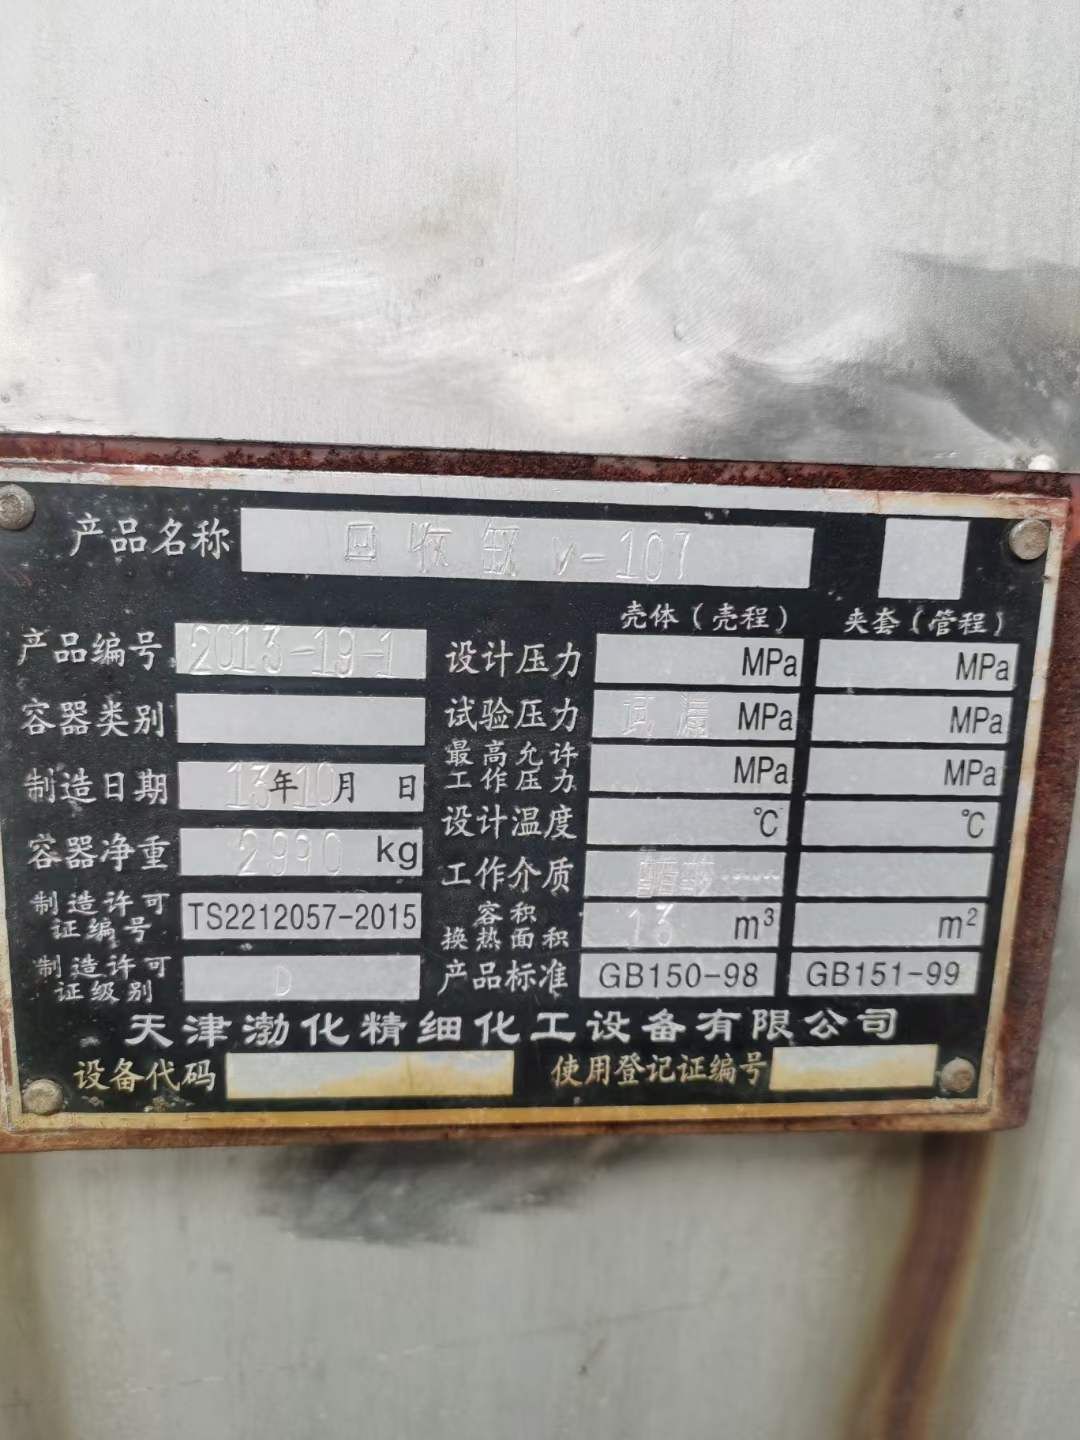 产品名称 回收缸 V-107
壳体(壳程) 夹套(管程)
产品编号 2013-19-1 设计压力 MPa MPa
容器类别 试验压力 试漏 MPa MPa
最高允许工作压力 MPa MPa
制造日期 13年10月 日
设计温度 ℃ ℃
容器净重 2990 kg
工作介质
制造许可证编号 TS2212057-2015
容积 换热面积 13 m³ m²
制造许可证级别 D
产品标准 GB150-98 GB151-99
天津渤化精细化工设备有限公司
设备代码 使用登记证编号